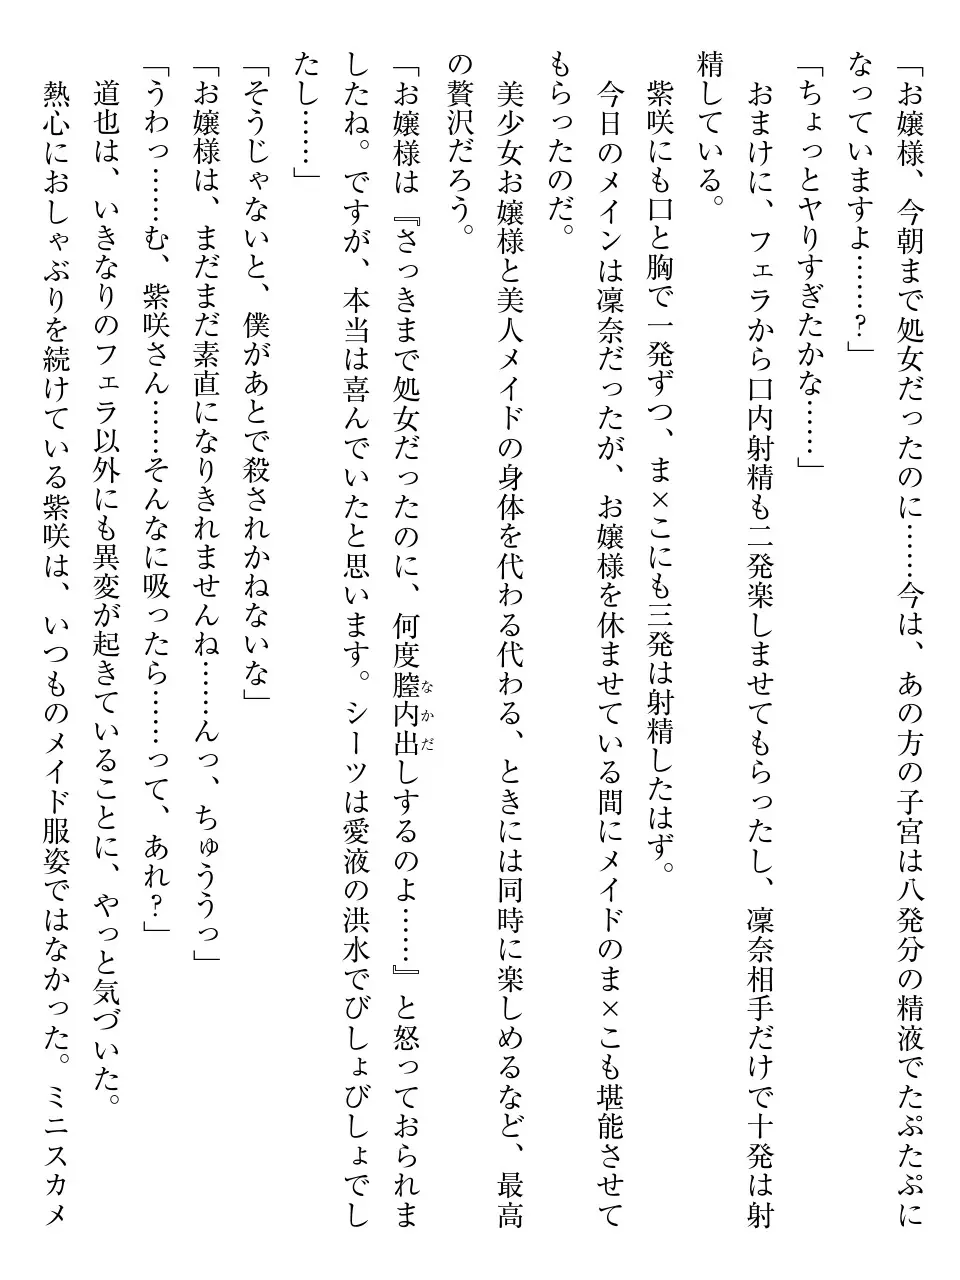 「お嬢様、今朝まで処女だったのに……今は、あの方の子宮は八発分の精液でたぷたぷに
なっていますよ……？」
「ちょっとヤりすぎたかな……」
おまけに、フェラから口内射精も二発楽しませてもらったし、凜奈相手だけで十発は射
精している。
紫咲にも口と胸で一発ずつ、ま×こにも三発は射精したはず。
今日のメインは凜奈だったが、お嬢様を休ませている間にメイドのま×こも堪能させて
もらったのだ。
美少女お嬢様と美人メイドの身体を代わる代わる、ときには同時に楽しめるなど、最高
の贅沢だろう。
「お嬢様は『さっきまで処女だったのに、何度膣内出なかだしするのよ……』と怒っておられま
したね。ですが、本当は喜んでいたと思います。シーツは愛液の洪水でびしょびしょでし
たし……」
「そうじゃないと、僕があとで殺されかねないな」
「お嬢様は、まだまだ素直になりきれませんね……んっ、ちゅううっ」
「うわっ……む、紫咲さん……そんなに吸ったら……って、あれ？」
道也は、いきなりのフェラ以外にも異変が起きていることに、やっと気づいた。
熱心におしゃぶりを続けている紫咲は、いつものメイド服姿ではなかった。ミニスカメ